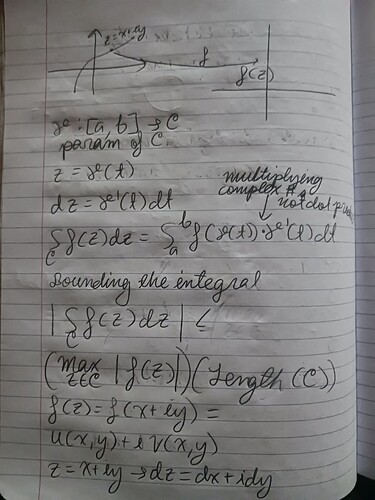 z=x+iy
f
f(z)
γ: [a, b] → C
param of C
z = γ(t)
dz = γ'(t)dt
multiplying
complex #s
not dot prod
∫_C f(z)dz = ∫_a^b f(γ(t))·γ'(t)dt
Bounding the integral
|∫_C f(z)dz| ≤
(max_{z∈C} |f(z)|)(Length(C))
f(z) = f(x+iy) =
u(x,y) + i v(x,y)
z = x+iy → dz = dx+idy